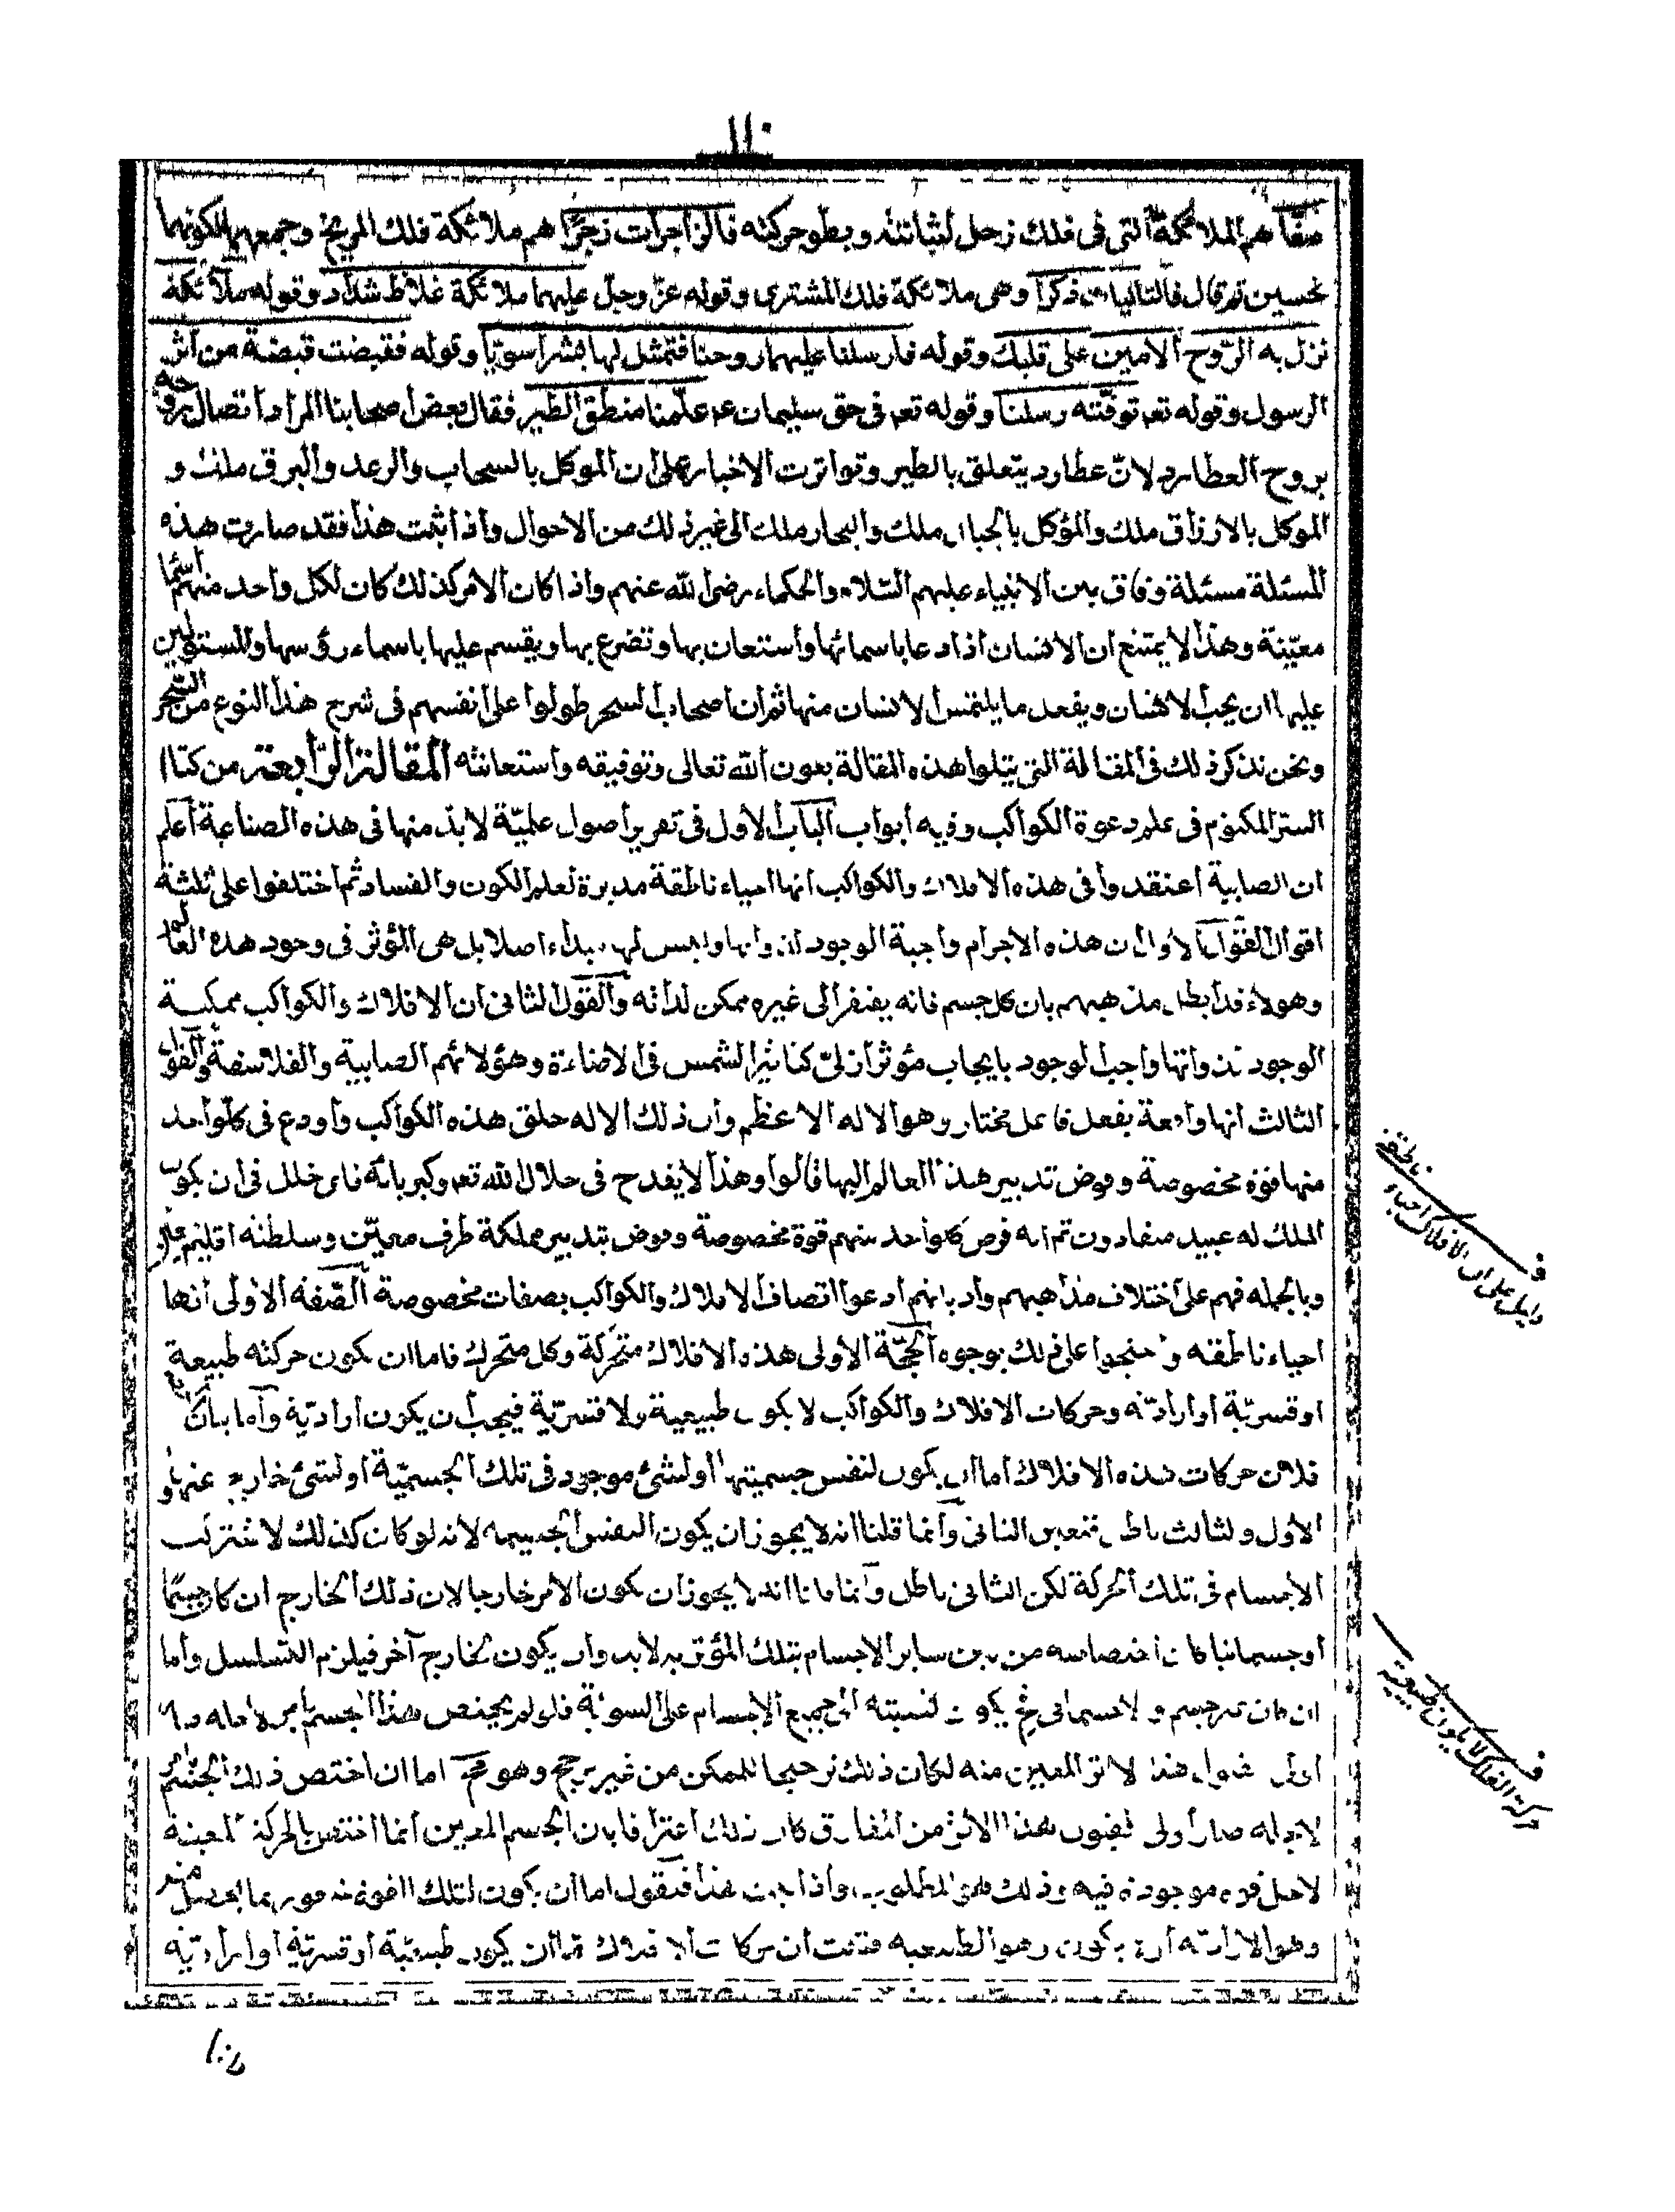 ١١٠
صفّا هم الملائكة التى فى فلك زحل لثباتته وبطوحركته فالزاجرات زجرًا هم ملائكة فلك المريخ وجمعهما لكونهما
نحسين ثم قال فالتاليات ذكرا وهى ملائكة فلك المشترى وقوله عزّ وجلّ عليهما ملائكة غلاظ شداد وقوله ملائكة
نزل به الرّوح الامين على قلبك وقوله فارسلنا عليهما روحنا فتمثل لها بشرا سويّا وقوله فقبضت قبضة من اثر
الرسول وقوله تعه توفّته رسلنا وقوله تعه فى حق سليمان عم علّمنا منطق الطير فقال بعض اصحابنا المراد اتصال روحه
بروح العطارد لانّ عطارد يتعلق بالطير وتواترت الاخبار على ان الموكل بالسحاب والرعد والبرق ملك و
الموكل بالارزاق ملك والمؤكل بالجبال ملك والبحار ملك الى غير ذلك من الاحوال واذا ثبت هذا فقد صارت هذه
المسئلة مسئلة وفاق بين الانبياء عليهم السّلام والحكماء رضى الله عنهم واذا كان الأمر كذلك كان لكل واحد منهم اسما
معيّنة وهذا لا يمتنع ان الانسان اذا دعا باسمائها واستعان بها وتضرع بها ويقسم عليها باسماء رؤسها والمستولين
عليها ان يجب الانسان ويفعل ما يلتمس الانسان منها ثم ان اصحاب السحر طولوا على انفسهم فى شرح هذا النوع من السّحر
ونحن نذكر ذلك فى المقالة التى يتلوا هذه المقالة بعون الله تعالى وتوفيقه واستعانته المقالة الرّابعة من كتاب
السرّ المكتوم فى علم دعوة الكواكب وفيه ابواب الباب الاول فى تقرير اصول علميّة لا بدّ منها فى هذه الصناعة اعلم
ان الصابية اعتقدوا فى هذه الافلاك والكواكب انها احياء ناطقة مدبرة لعالم الكون والفساد ثم اختلفوا على ثلثة
اقوال القول الاوّل ان هذه الاجرام واجبة الوجود لذواتها وليس لها مبداء اصلا بل هى المؤثر فى وجود هذه العالم
وهولاء قد ابطل مذهبهم بان كل جسم فانه يفتقر الى غيره ممكن لذاته والقول الثانى ان الافلاك والكواكب ممكنة
الوجود لذواتها واجب الوجود بايجاب مؤثر ازلىّ كتاثير الشمس فى الاضاءة وهؤلائهم الصابية والفلاسفة والقول
الثالث انها واقعة بفعل فاعل مختار وهو الاله الاعظم وان ذلك الاله خلق هذه الكواكب واودع فى كلّ واحد
منها قوة مخصوصة وفوض تدبير هذا العالم اليها قالوا وهذا لا يقدح فى جلال الله تعه وكبريائه فاى خلل فى ان يكون
الملك له عبيد منقادون ثم انه فوض كلواحد منهم قوة مخصوصة وفوض بتدبير مملكة طرف معيّن وسلطنه اقليم
وبالجمله فهم على اختلاف مذاهبهم واديانهم ادعوا اتصاف الافلاك والكواكب بصفات مخصوصة الصّفه الاولى انها
احياء ناطقه واحتجوا على ذلك بوجوه الحجّة الاولى هذه الافلاك متحرّكة وكل متحرك فاما ان يكون حركته طبيعة
او قسريّة او ارادته وحركات الافلاك والكواكب لا يكون طبيعية ولا قسريّة فيجب ان يكون اراديّة واما بيان
فلان حركات هذه الافلاك اما ان يكون لنفس جسميتها او لشئ موجود فى تلك الجسميّة او لشئ خارج عنها و
الاول والثالث باطل فتعين الثانى وانما قلنا انه لا يجوز ان يكون النفس الجسيمه لانه لو كان كذلك لاشتركت
الاجسام فى تلك الحركة لكن الثانى باطل وانما قلنا انه لا يجوز ان يكون الامر خارجا لان ذلك الخارج ان كان جسمًا
او جسمانيا كان اختصاصه من بين ساير الاجسام بتلك المؤثريه لا بد وان يكون لخارج آخر فيلزم التسلسل واما
ان كان غير جسم ولا جسمانى يكون لنسبته الى جميع الاجسام على السوية فلو لم يختص هذا الجسم بامر لاجله صار
اولى بقبول هذا الاثر المعين منه لكان ذلك ترجيحا للممكن من غير مرجح وهو مح اما ان اختص ذلك الجسم
لاجله صار اولى لقبول هذا الاثر من المفارق كان ذلك اعترافا بان الجسم المعين انما اختص بالحركة المعينة
لاجل قوه موجودة فيه وذلك هو المطلوب واذا ثبت هذا فنقول اما ان يكون لتلك القوة شعور بما يحصل منه
وهو الارادته او لا يكون وهو الطبيعيه فثبت ان حركات الافلاك اما ان يكون طبيعيّة او قسريّة او اراديّه
ف دليل على ان الافلاك احياء ناطقة
ف حركة الفلك لا يكون طبيعية